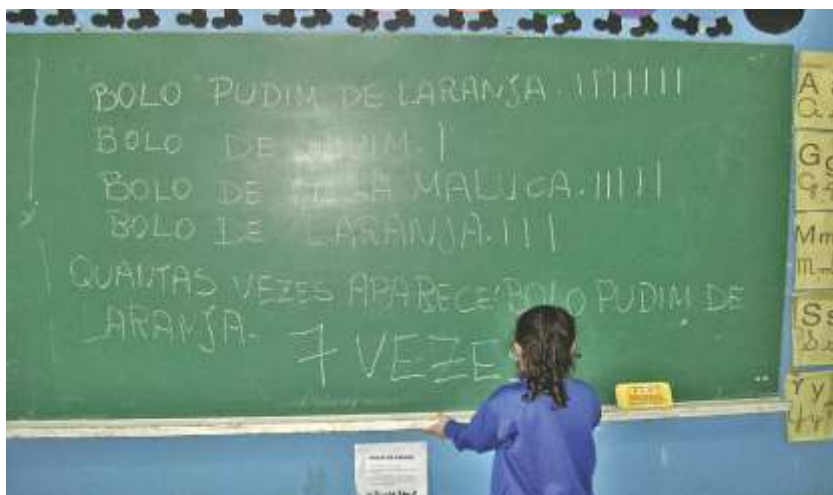 BOLO PUDIM DE LARANJA. IIIIIII
BOLO DE I
BOLO DE MALUCA. IIIII
BOLO DE LARANJA. III
QUANTAS VEZES APARECE BOLO PUDIM DE
LARANJA.
7 VEZE
A
G g
M m
S s